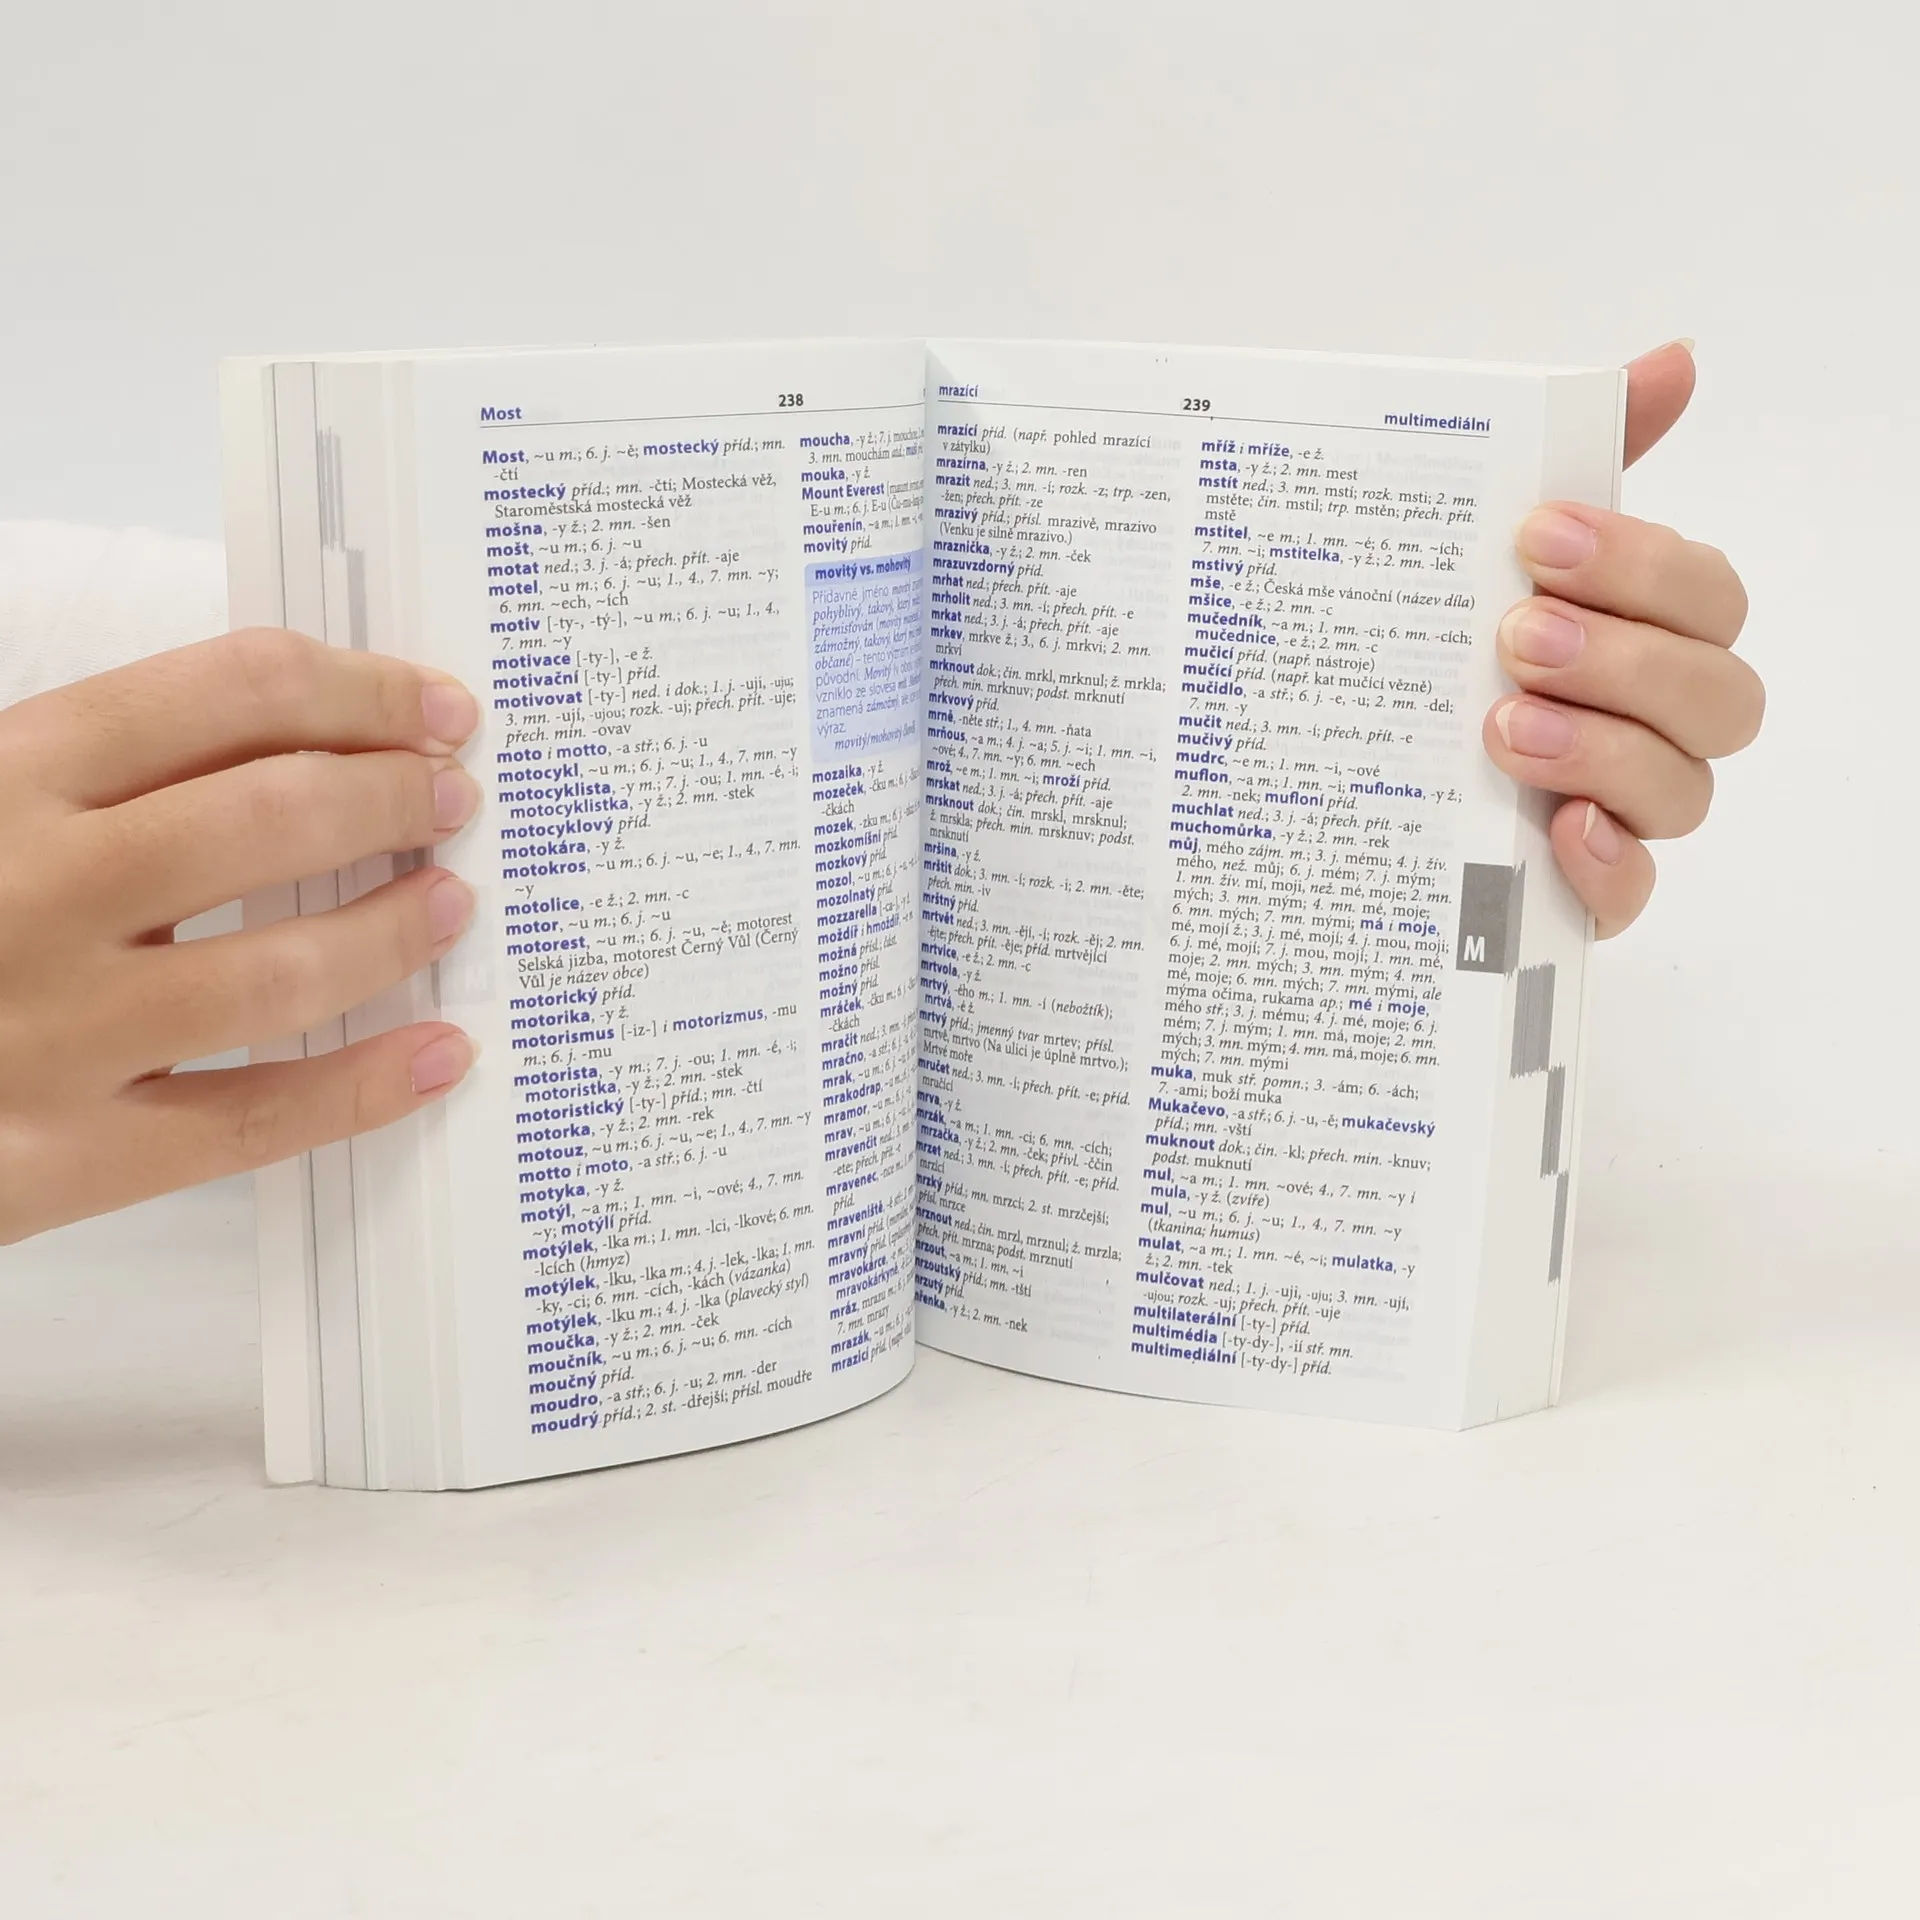 Most
238
Most, ~u m.; 6. j. ~ě; mostecký příd.; mn.
-čtí
mostecký příd.; mn. -čtí; Mostecká věž,
Staroměstská mostecká věž
mošna, -y ž.; 2. mn. -šen
mošt, ~u m.; 6. j. ~u
motat ned.; 3. j. -á; přech. přít. -aje
motel, ~u m.; 6. j. ~u; 1., 4., 7. mn. ~y;
6. mn. ~ech, ~ích
motiv [-ty-, -tý-], ~u m.; 6. j. ~u; 1., 4.,
7. mn. ~y
motivace [-ty-], -e ž.
motivační [-ty-] příd.
motivovat [-ty-] ned. i dok.; 1. j. -uji, -uju;
3. mn. -ují, -ujou; rozk. -uj; přech. přít. -uje;
přech. min. -ovav
moto i motto, -a stř.; 6. j. -u
motocykl, ~u m.; 6. j. ~u; 1., 4., 7. mn. ~y
motocyklista, -y m.; 7. j. -ou; 1. mn. -é, -i;
motocyklistka, -y ž.; 2. mn. -stek
motocyklový příd.
motokára, -y ž.
motokros, ~u m.; 6. j. ~u, ~e; 1., 4., 7. mn.
~y
motolice, -e ž.; 2. mn. -c
motor, ~u m.; 6. j. ~u
motorest, ~u m.; 6. j. ~u, ~ě; motorest
Selská jizba, motorest Černý Vůl (Černý
Vůl je název obce)
motorický příd.
motorika, -y ž.
motorismus [-iz-] i motorizmus, -mu
m.; 6. j. -mu
motorista, -y m.; 7. j. -ou; 1. mn. -é, -i;
motoristka, -y ž.; 2. mn. -stek
motoristický [-ty-] příd.; mn. -čtí
motorka, -y ž.; 2. mn. -rek
motouz, ~u m.; 6. j. ~u, ~e; 1., 4., 7. mn. ~y
motto i moto, -a stř.; 6. j. -u
motyka, -y ž.
motýl, ~a m.; 1. mn. ~i, ~ové; 4., 7. mn.
~y; motýlí příd.
motýlek, -lka m.; 1. mn. -lci, -lkové; 6. mn.
-lcích (hmyz)
motýlek, -lku, -lka m.; 4. j. -lek, -lka; 1. mn.
-ky, -ci; 6. mn. -cích, -kách (vázanka)
motýlek, -lku m.; 4. j. -lka (plavecký styl)
moučka, -y ž.; 2. mn. -ček
moučník, ~u m.; 6. j. ~u; 6. mn. -cích
moučný příd.
moudro, -a stř.; 6. j. -u; 2. mn. -der
moudrý příd.; 2. st. -dřejší; přísl. moudře
moucha, -y ž.; 7. j.
3. mn. mouchám
mouka, -y ž.
Mount Everest
E-u m.; 6. j. E-u
mouřenín, ~a m.; 1. mn.
movitý příd.
movitý vs. mohovitý
Přídavné jméno movitý
pohyblivý, takový, který
přemisťován (movitý
zámožný, takový, který
občané) – tento význam
původní. Movitý
vzniklo ze slovesa
znamená zámožný,
výraz.
movitý/mohovitý
mozaika, -y ž.
mozeček, -čku m.; 6. j.
-čkách
mozek, -zku m.; 6. j.
mozkomíšní příd.
mozkový příd.
mozol, ~u m.; 6. j.
mozolnatý příd.
mozzarella [-ca-], -y ž.
moždíř i hmoždíř,
možná přísl.; část.
možno přísl.
možný příd.
mráček, -čku m.; 6. j.
-čkách
mračit ned.; 3. mn.
mračno, -a stř.; 6. j.
mrak, ~u m.; 6. j.
mrakodrap, ~u m.; 6. j.
mramor, ~u m.; 6. j.
mrav, ~u m.; 6. j.
mravenčit ned.; 3. mn.
-ete; přech. přít. -e
mravenec, -nce m.;
příd.
mraveniště, -ě stř.;
mravní příd.
mravný příd.
mravokárce, -e m.;
mravokárkyně,
mráz, mrazu m.; 6. j.
7. mn. mrazy
mrazák, ~u m.; 6. j.
mrazicí příd.
mrazící
239
multimediální
mrazící příd. (např. pohled mrazící
v zátylku)
mrazírna, -y ž.; 2. mn. -ren
mrazit ned.; 3. mn. -í; rozk. -z; trp. -zen,
-žen; přech. přít. -ze
mrazivý příd.; přísl. mrazivě, mrazivo
(Venku je silně mrazivo.)
mraznička, -y ž.; 2. mn. -ček
mrazuvzdorný příd.
mrhat ned.; přech. přít. -aje
mrholit ned.; 3. mn. -í; přech. přít. -e
mrkat ned.; 3. j. -á; přech. přít. -aje
mrkev, mrkve ž.; 3., 6. j. mrkvi; 2. mn.
mrkví
mrknout dok.; čin. mrkl, mrknul; ž. mrkla;
přech. min. mrknuv; podst. mrknutí
mrkvový příd.
mrně, -něte stř.; 1., 4. mn. -ňata
mrňous, ~a m.; 4. j. ~a; 5. j. ~i; 1. mn. ~i,
~ové; 4., 7. mn. ~y; 6. mn. ~ech
mrož, ~e m.; 1. mn. ~i; mroží příd.
mrskat ned.; 3. j. -á; přech. přít. -aje
mrsknout dok.; čin. mrskl, mrsknul;
ž. mrskla; přech. min. mrsknuv; podst.
mrsknutí
mršina, -y ž.
mrštit dok.; 3. mn. -í; rozk. -i; 2. mn. -ěte;
přech. min. -iv
mrštný příd.
mrtvět ned.; 3. mn. -ějí, -í; rozk. -ěj; 2. mn.
-ějte; přech. přít. -ěje; příd. mrtvějící
mrtvice, -e ž.; 2. mn. -c
mrtvola, -y ž.
mrtvý, -ého m.; 1. mn. -í (nebožtík);
mrtvá, -é ž.
mrtvý příd.; jmenný tvar mrtev; přísl.
mrtvě, mrtvo (Na ulici je úplně mrtvo.);
Mrtvé moře
mručet ned.; 3. mn. -í; přech. přít. -e; příd.
mručící
mrva, -y ž.
mrzák, ~a m.; 1. mn. -ci; 6. mn. -cích;
mrzačka, -y ž.; 2. mn. -ček; přivl. -ččin
mrzet ned.; 3. mn. -í; přech. přít. -e; příd.
mrzící
mrzký příd.; mn. mrzcí; 2. st. mrzčejší;
přísl. mrzce
mrznout ned.; čin. mrzl, mrznul; ž. mrzla;
přech. přít. mrzna; podst. mrznutí
mrzout, ~a m.; 1. mn. ~i
mrzoutský příd.; mn. -tští
mrzutý příd.
mřenka, -y ž.; 2. mn. -nek
mříž i mříže, -e ž.
msta, -y ž.; 2. mn. mest
mstít ned.; 3. mn. mstí; rozk. msti; 2. mn.
mstěte; čin. mstil; trp. mstěn; přech. přít.
mstě
mstitel, ~e m.; 1. mn. ~é; 6. mn. ~ích;
7. mn. ~i; mstitelka, -y ž.; 2. mn. -lek
mstivý příd.
mše, -e ž.; Česká mše vánoční (název díla)
mšice, -e ž.; 2. mn. -c
mučedník, ~a m.; 1. mn. -ci; 6. mn. -cích;
mučednice, -e ž.; 2. mn. -c
mučicí příd. (např. nástroje)
mučící příd. (např. kat mučící vězně)
mučidlo, -a stř.; 6. j. -e, -u; 2. mn. -del;
7. mn. -y
mučit ned.; 3. mn. -í; přech. přít. -e
mučivý příd.
mudrc, ~e m.; 1. mn. ~i, ~ové
muflon, ~a m.; 1. mn. ~i; muflonka, -y ž.;
2. mn. -nek; mufloní příd.
muchlat ned.; 3. j. -á; přech. přít. -aje
muchomůrka, -y ž.; 2. mn. -rek
můj, mého zájm. m.; 3. j. mému; 4. j. živ.
mého, než. můj; 6. j. mém; 7. j. mým;
1. mn. živ. mí, moji, než. mé, moje; 2. mn.
mých; 3. mn. mým; 4. mn. mé, moje;
6. mn. mých; 7. mn. mými; má i moje,
mé, mojí ž.; 3. j. mé, mojí; 4. j. mou, moji;
6. j. mé, mojí; 7. j. mou, mojí; 1. mn. mé,
moje; 2. mn. mých; 3. mn. mým; 4. mn.
mé, moje; 6. mn. mých; 7. mn. mými, ale
mýma očima, rukama ap.; mé i moje,
mého stř.; 3. j. mému; 4. j. mé, moje; 6. j.
mém; 7. j. mým; 1. mn. má, moje; 2. mn.
mých; 3. mn. mým; 4. mn. má, moje; 6. mn.
mých; 7. mn. mými
muka, muk stř. pomn.; 3. -ám; 6. -ách;
7. -ami; boží muka
Mukačevo, -a stř.; 6. j. -u, -ě; mukačevský
příd.; mn. -vští
muknout dok.; čin. -kl; přech. min. -knuv;
podst. muknutí
mul, ~a m.; 1. mn. ~ové; 4., 7. mn. ~y i
mula, -y ž. (zvíře)
mul, ~u m.; 6. j. ~u; 1., 4., 7. mn. ~y
(tkanina; humus)
mulat, ~a m.; 1. mn. ~é, ~i; mulatka, -y
ž.; 2. mn. -tek
mulčovat ned.; 1. j. -uji, -uju; 3. mn. -ují,
-ujou; rozk. -uj; přech. přít. -uje
multilaterální [-ty-] příd.
multimédia [-ty-dy-], -ií stř. mn.
multimediální [-ty-dy-] příd.
M